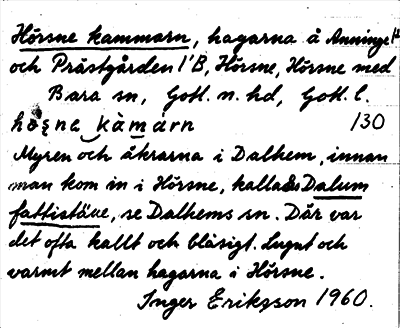 Hörsne kammarn, hagarna å Anninge 1:1
och Prästgården 1:1 B, Hörsne, Hörsne med
Bara sn, Gotl. n. hd, Gotl. l.
kàmárn 130
Myren och åkrarna i Dalhem, innan
man kom in i Hörsne, kallades Dalum
fattistäue, se Dalhems sn. Där var
det ofta kallt och blåsigt. Lugnt och
varmt mellan hagarna i Hörsne.
Inger Eriksson 1960.